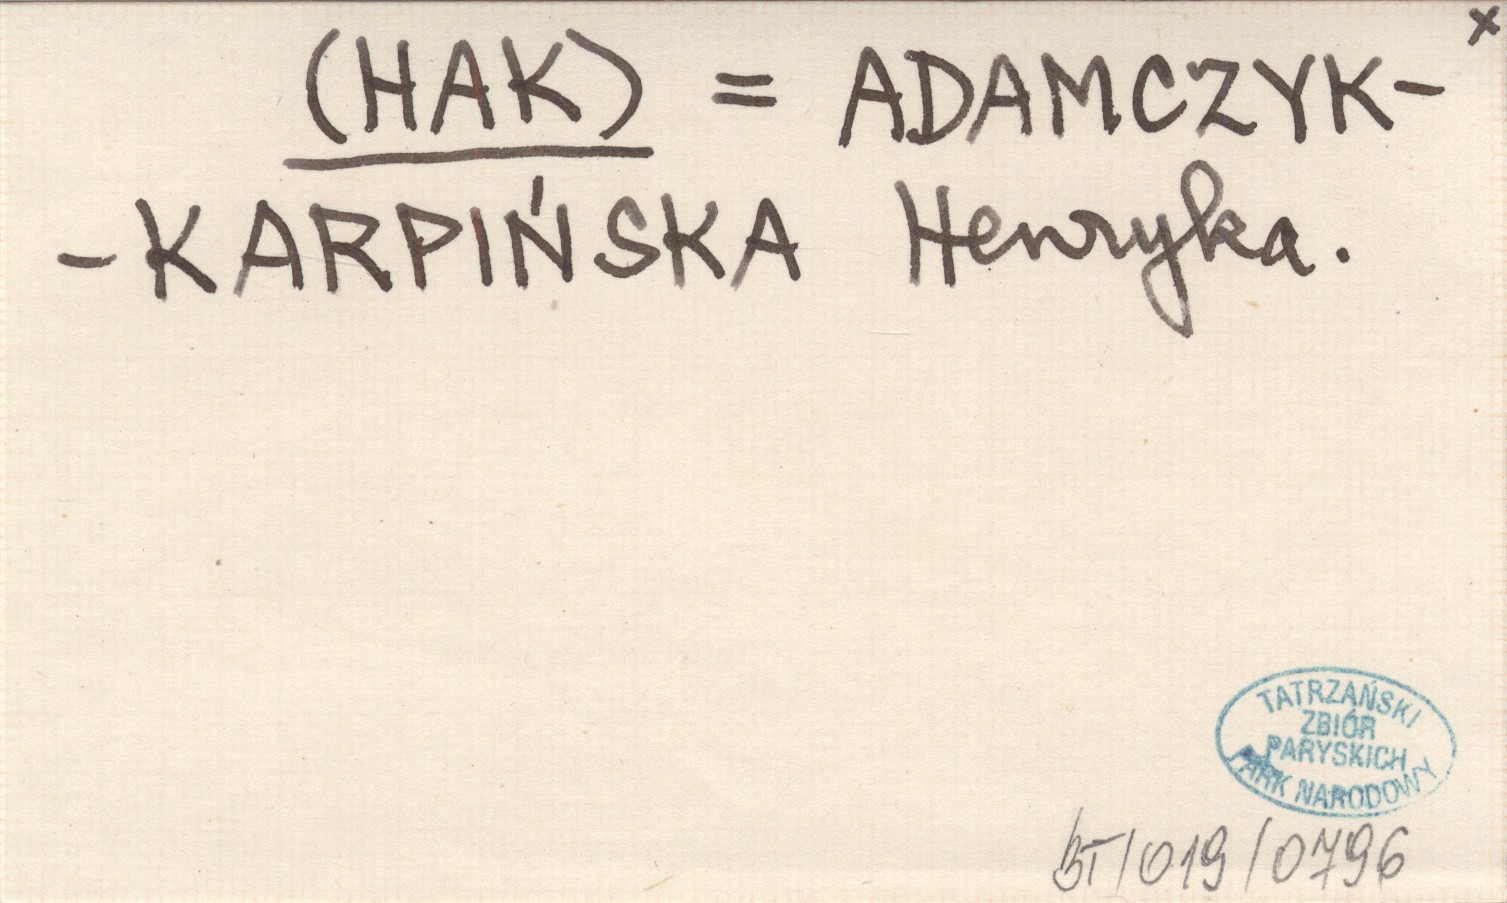 x
(HAK) = ADAMCZYK-
-KARPIŃSKA Henryka.
TATRZAŃSKI
ZBIÓR
PARYSKICH
PARK NARODOWY
BT/019/0796